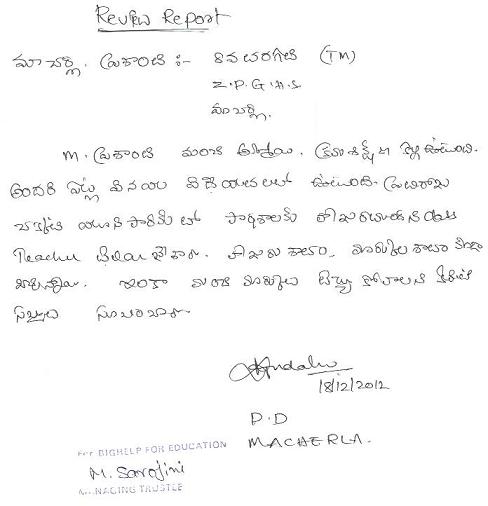 Review Report
మాచర్ల. ప్రశాంతి :- 8వ తరగతి (TM)
Z.P.G.H.S.
మాచర్ల.
M. ప్రశాంతి మంచి అమ్మాయి. క్రమశిక్షణ కల్గి ఉంటుంది.
అందరి పట్ల వినయ విధేయతలతో ఉంటుంది. ప్రతిరోజు
చక్కటి యూనిఫారమ్ తో పాఠశాలకు
Teacher హాజరు శాతం, మార్కుల శాతం కూడా
ఇంకా మంచి మార్కులు తెచ్చు కోవాలని

18/12/2012
P.D
MACHERLA.
For BIGHELP FOR EDUCATION
M. Sarojini
MANAGING TRUSTEE